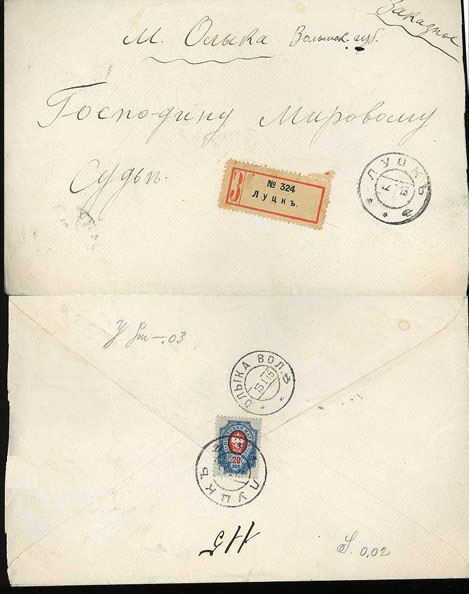 Заказное
М. Олыка Волынск. губ.
Господину Мировому
Судьѣ.
З
№ 324
Луцкъ.
ЛУЦКЪ
* * а
03
ОЛЫКА ВОЛ.
20
ЛУЦКЪ
0,02